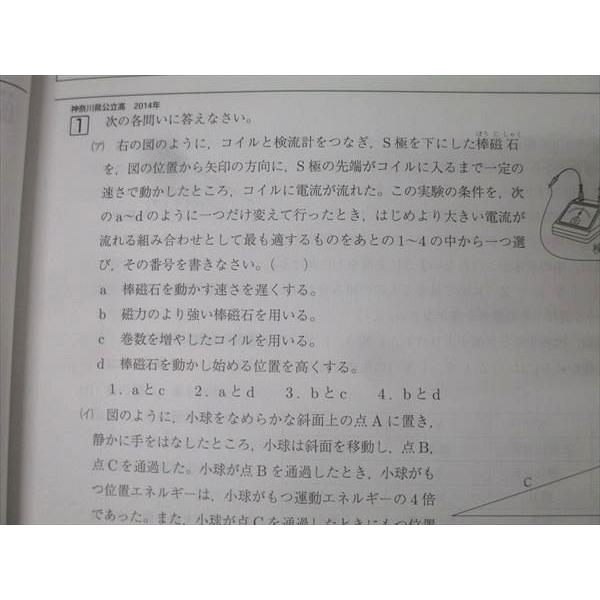 神奈川県公立高 2014年
1 次の各問いに答えなさい。
(ア) 右の図のように，コイルと検流計をつなぎ，S極を下にした棒磁石
ぼうじしゃく
を，図の位置から矢印の方向に，S極の先端がコイルに入るまで一定の
速さで動かしたところ，コイルに電流が流れた。この実験の条件を，次
のa～dのように一つだけ変えて行ったとき，はじめより大きい電流が
流れる組み合わせとして最も適するものをあとの1～4の中から一つ選
び，その番号を書きなさい。（　　）
a 棒磁石を動かす速さを遅くする。
b 磁力のより強い棒磁石を用いる。
c 巻数を増やしたコイルを用いる。
d 棒磁石を動かし始める位置を高くする。
1．aとc 2．aとd 3．bとc 4．bとd
(イ) 図のように，小球をなめらかな斜面上の点Aに置き，
静かに手をはなしたところ，小球は斜面を移動し，点B，
点Cを通過した。小球が点Bを通過したとき，小球がも
つ位置エネルギーは，小球がもつ運動エネルギーの4倍
であった。また，小球が点Cを通過したときにもつ位置
C